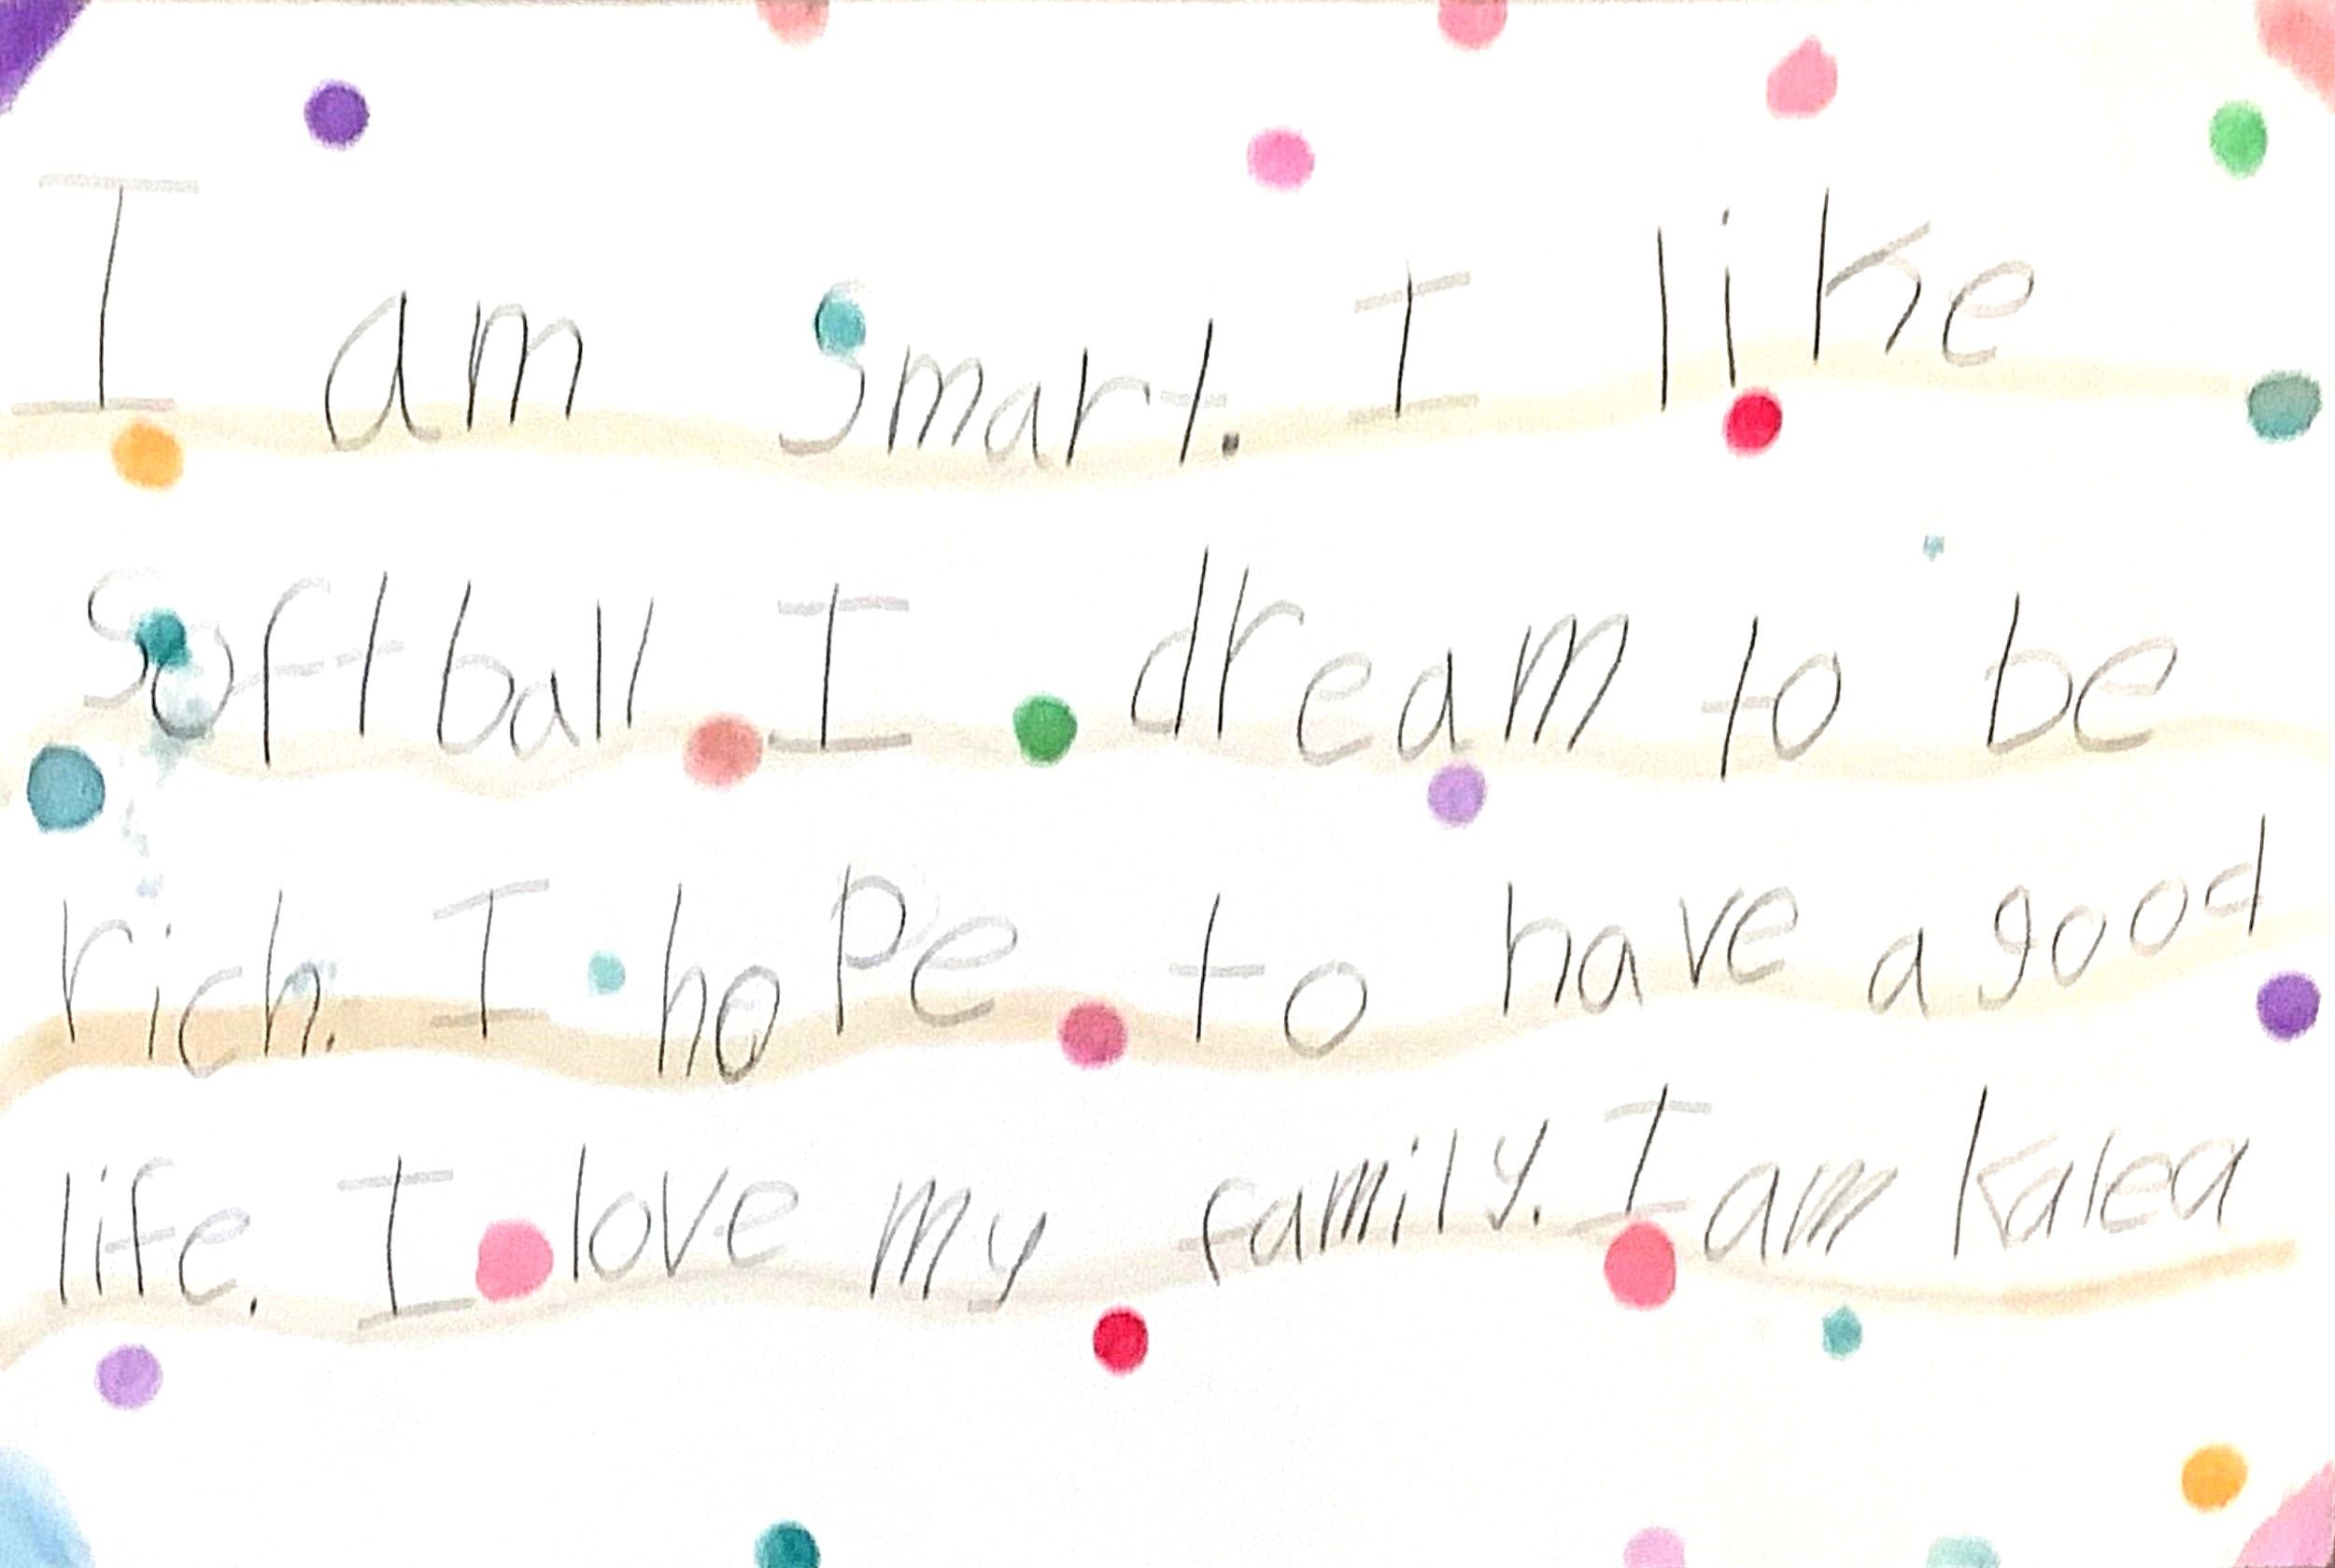 I am smart. I like
softball I dream to be
rich. I hope to have a good
life. I love my family. I am Kalea